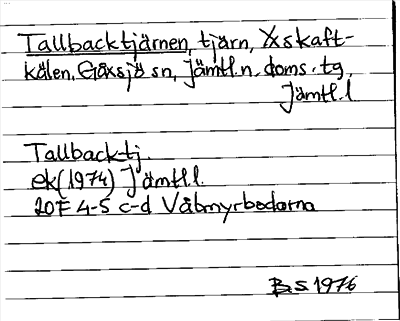 Tallbacktjärnen, tjärn, Yxskaft-
kälen, Gåxsjö sn, Jämtl.n. doms.tg,
Jämtl.l
Tallback-tj.
ek(1974) Jämtl.l.
20F 4-5 c-d Våtmyrbodarna
B.S 1976